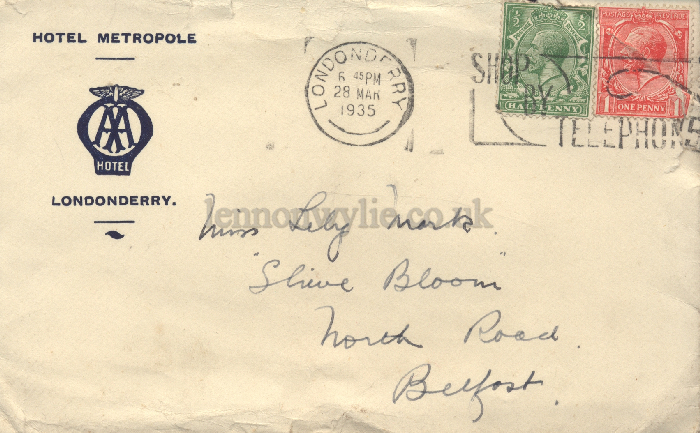 HOTEL METROPOLE
AA
HOTEL
LONDONDERRY.
LONDONDERRY
6 45 PM
28 MAR
1935
SHOP
BY
TELEPHONE
½ ½
HALFPENNY
POSTAGE REVENUE
1 1
ONE PENNY
lennonwylie.co.uk
Miss Lily Mark
"Slieve Bloom"
North Road
Belfast.